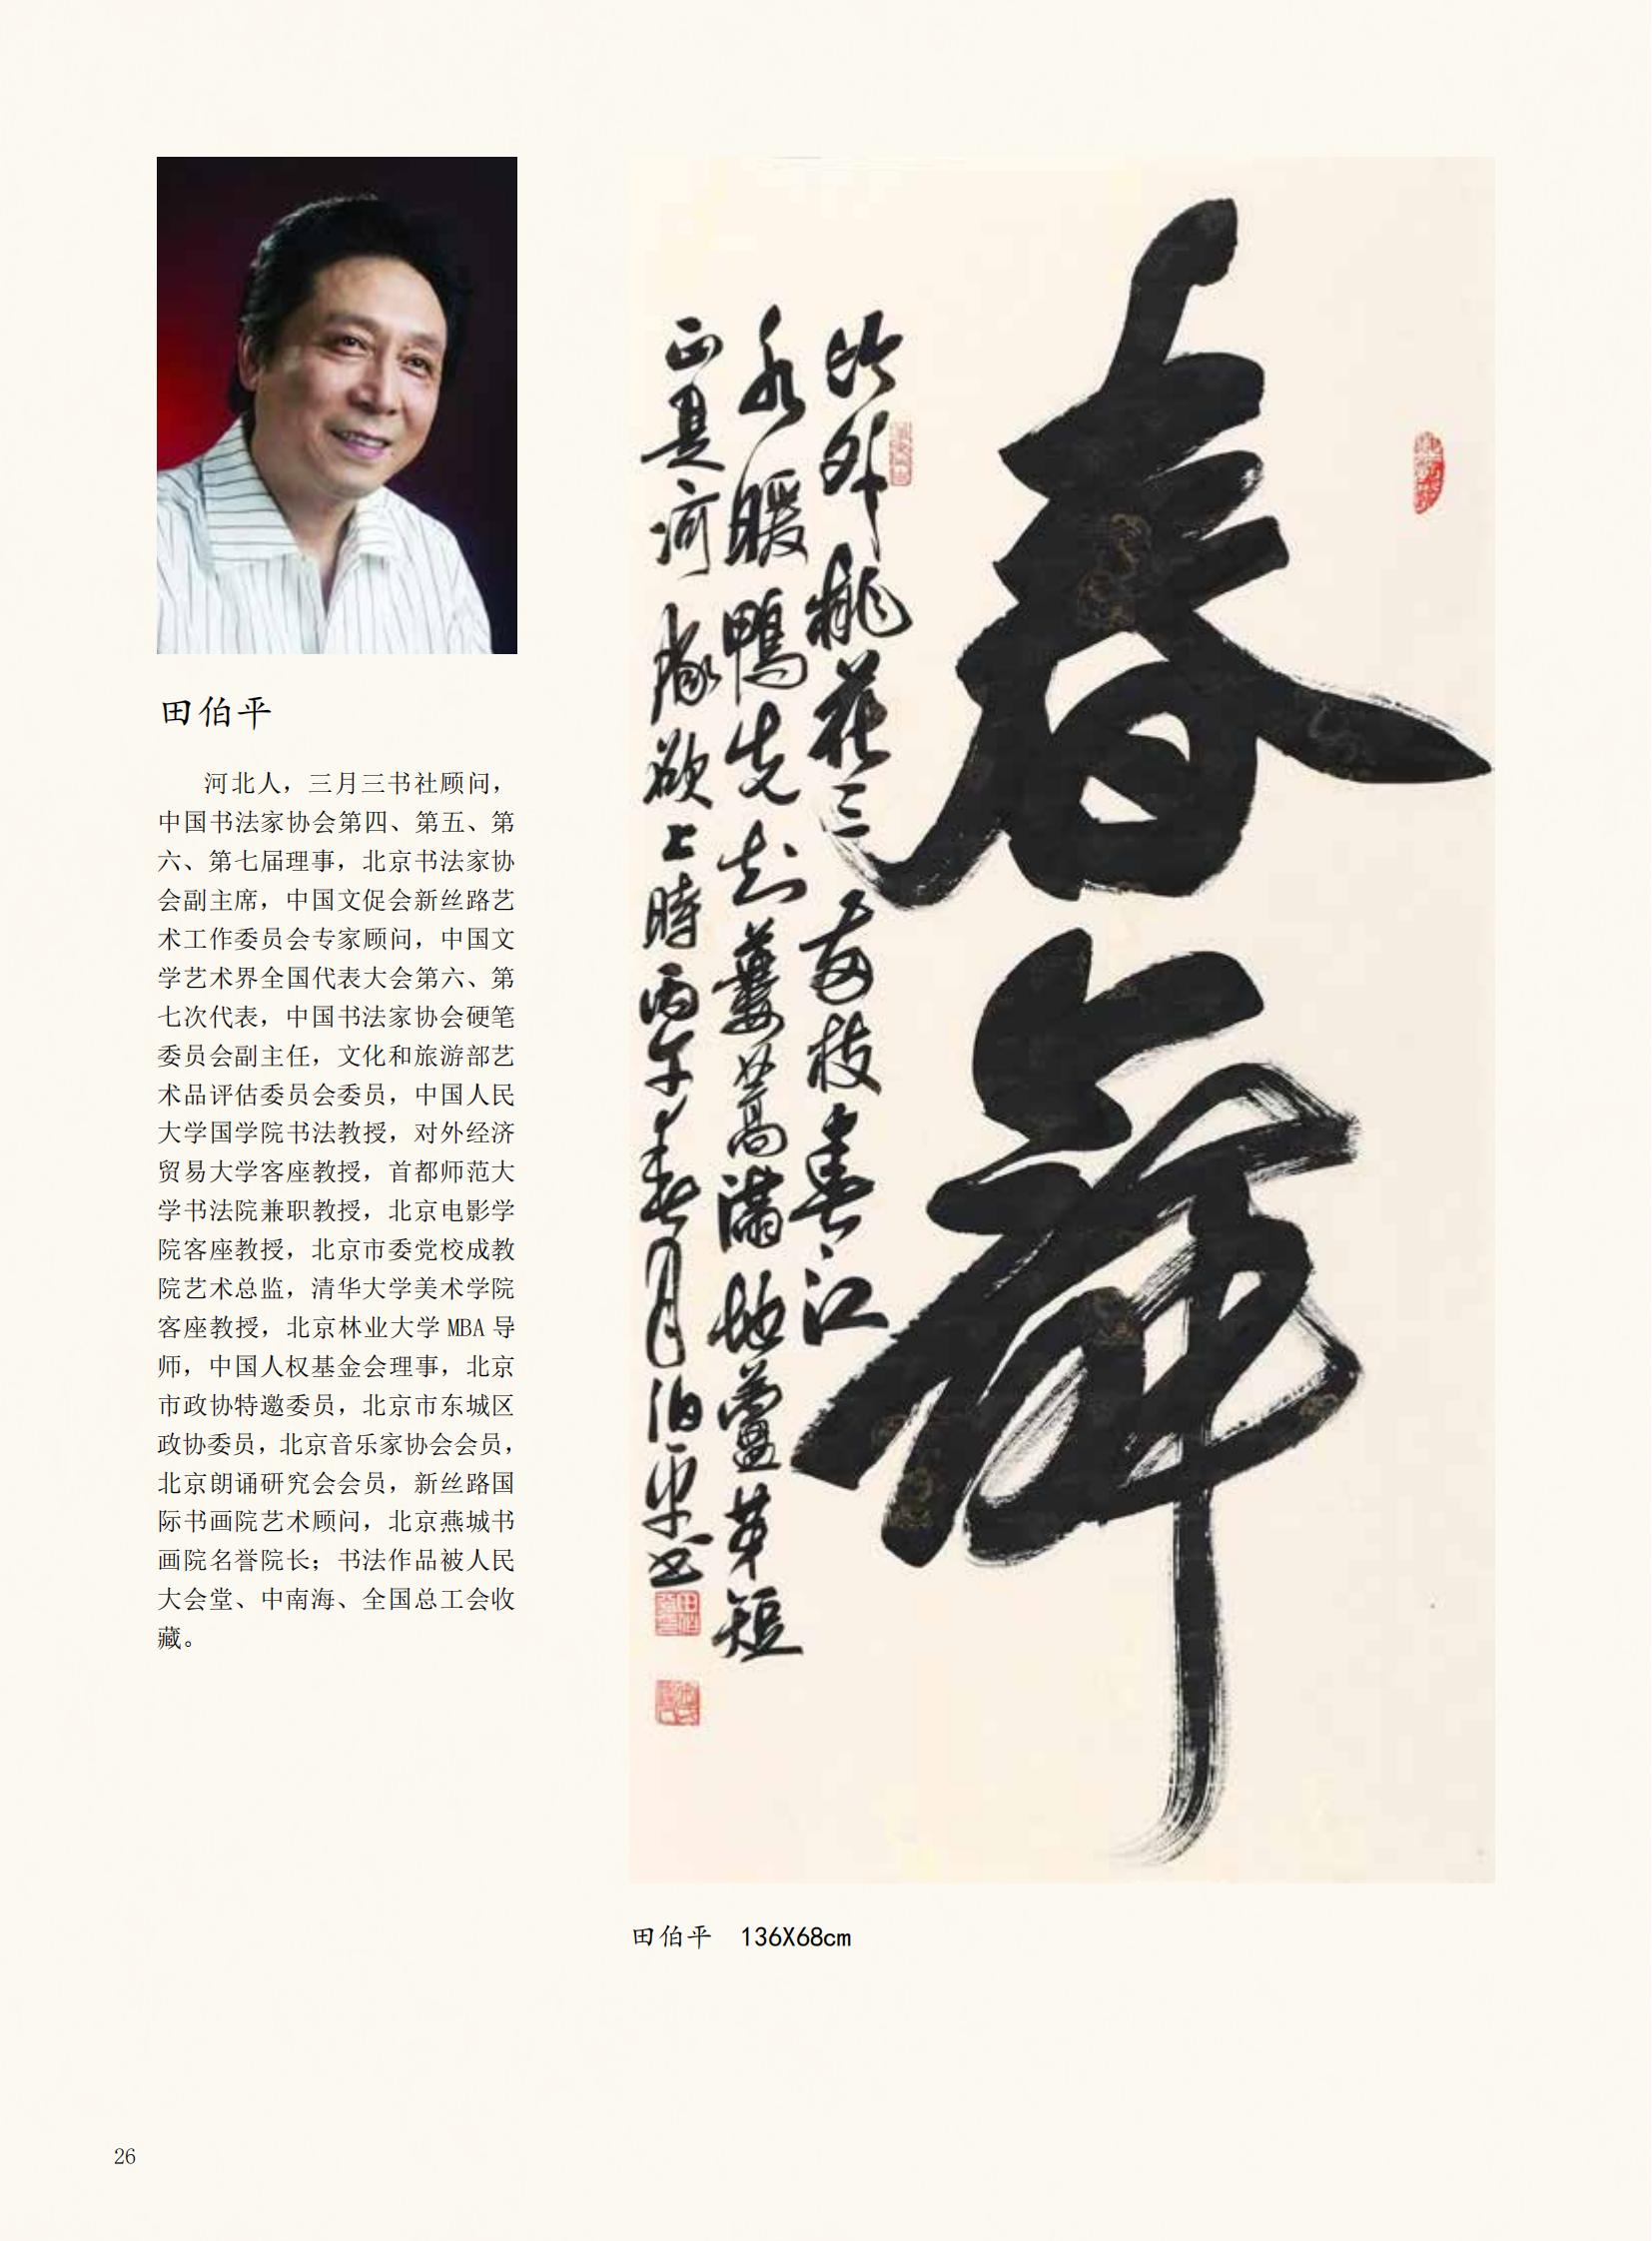 田伯平
河北人，三月三书社顾问，
中国书法家协会第四、第五、第
六、第七届理事，北京书法家协
会副主席，中国文促会新丝路艺
术工作委员会专家顾问，中国文
学艺术界全国代表大会第六、第
七次代表，中国书法家协会硬笔
委员会副主任，文化和旅游部艺
术品评估委员会委员，中国人民
大学国学院书法教授，对外经济
贸易大学客座教授，首都师范大
学书法院兼职教授，北京电影学
院客座教授，北京市委党校成教
院艺术总监，清华大学美术学院
客座教授，北京林业大学 MBA 导
师，中国人权基金会理事，北京
市政协特邀委员，北京市东城区
政协委员，北京音乐家协会会员，
北京朗诵研究会会员，新丝路国
际书画院艺术顾问，北京燕城书
画院名誉院长；书法作品被人民
大会堂、中南海、全国总工会收
藏。
春舞
竹外桃花三兩枝春江
水暖鴨先知蔞蒿滿地蘆芽短
正是河豚欲上時丙午春月伯平书
田伯平 136X68cm
26